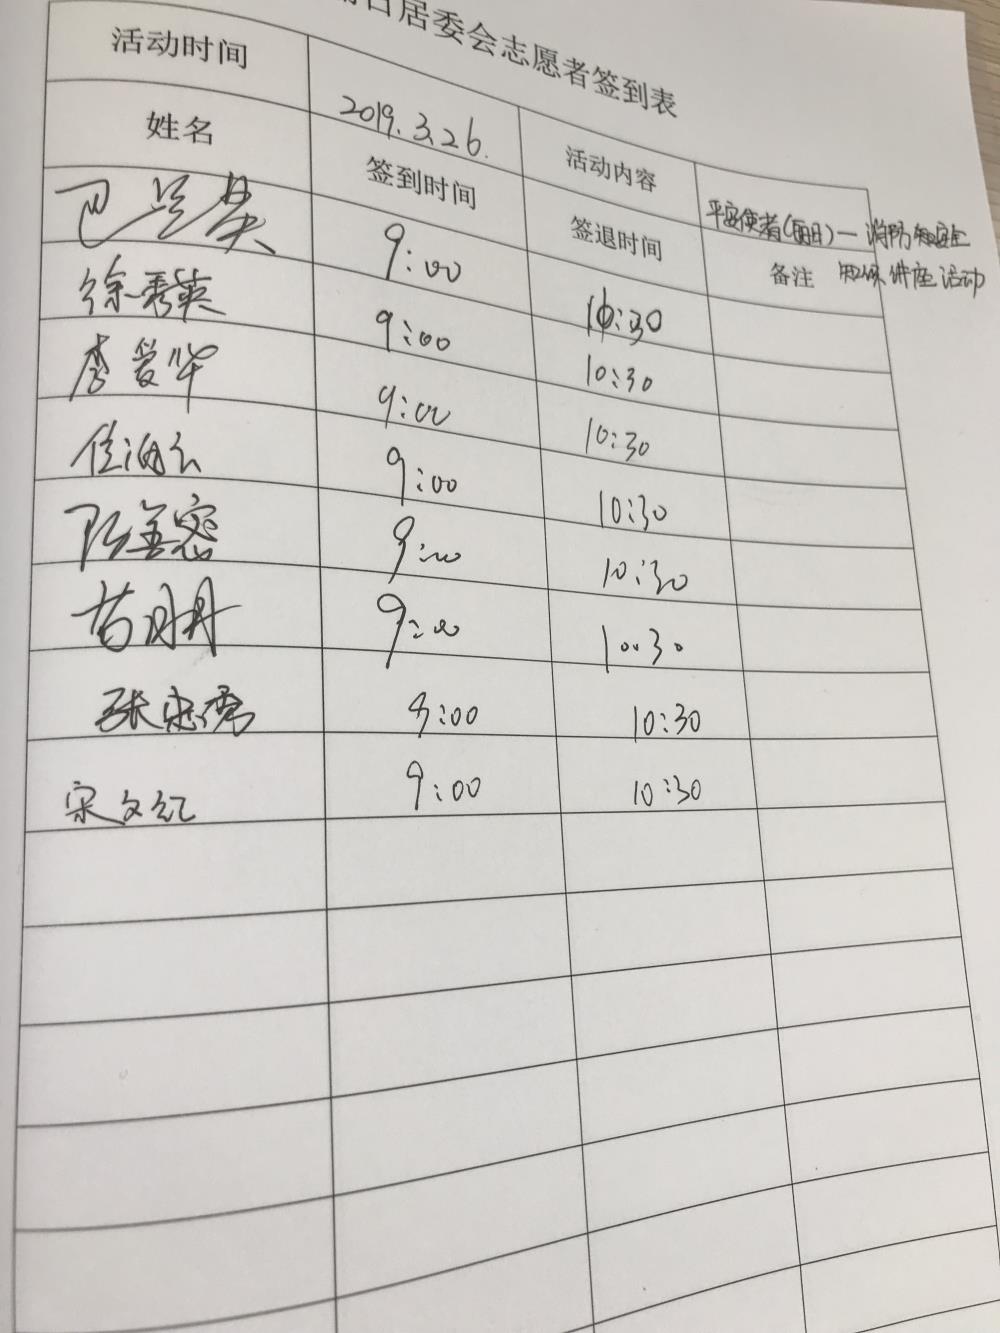 居委会志愿者签到表
活动时间 2019.3.26. 活动内容 平安使者(丽日)一消防知安全
知识讲座活动
姓名 签到时间 签退时间 备注
9:00 10:30
徐秀英 9:00 10:30
李爱华 9:00 10:30
9:00 10:30
9:00 10:30
苗丹丹 9:00 10:30
张忠秀 9:00 10:30
宋文红 9:00 10:30